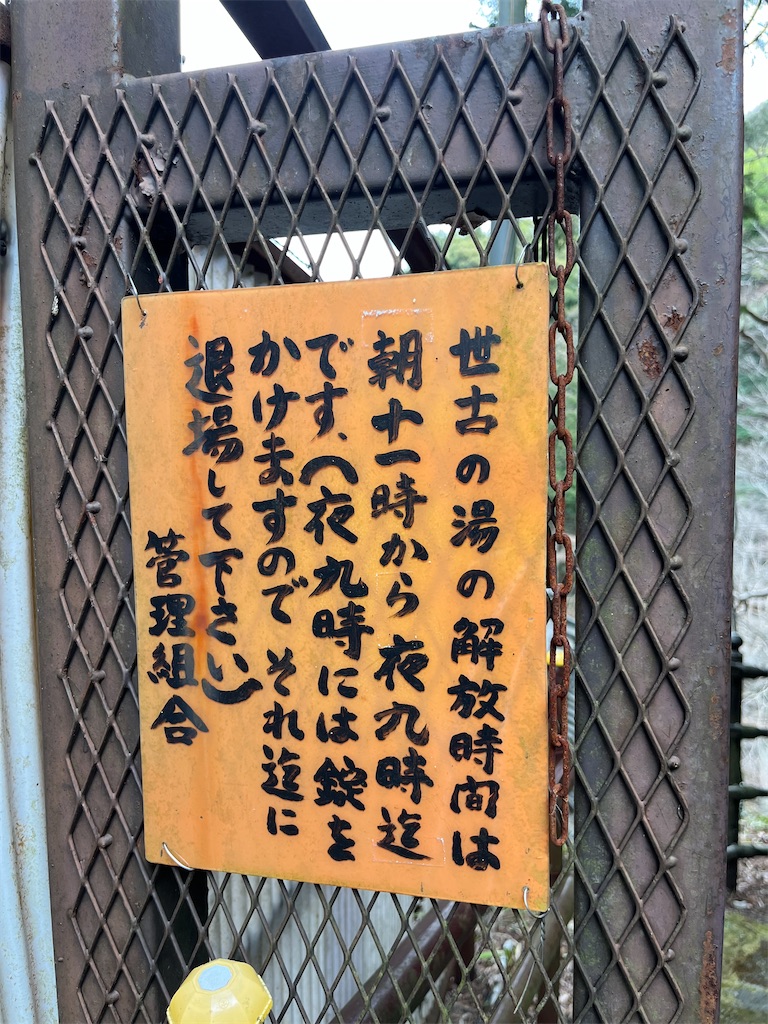 世古の湯の解放時間は
朝十一時から夜九時迄
です、（夜九時には錠を
かけますので それ迄に
退場して下さい）
管理組合